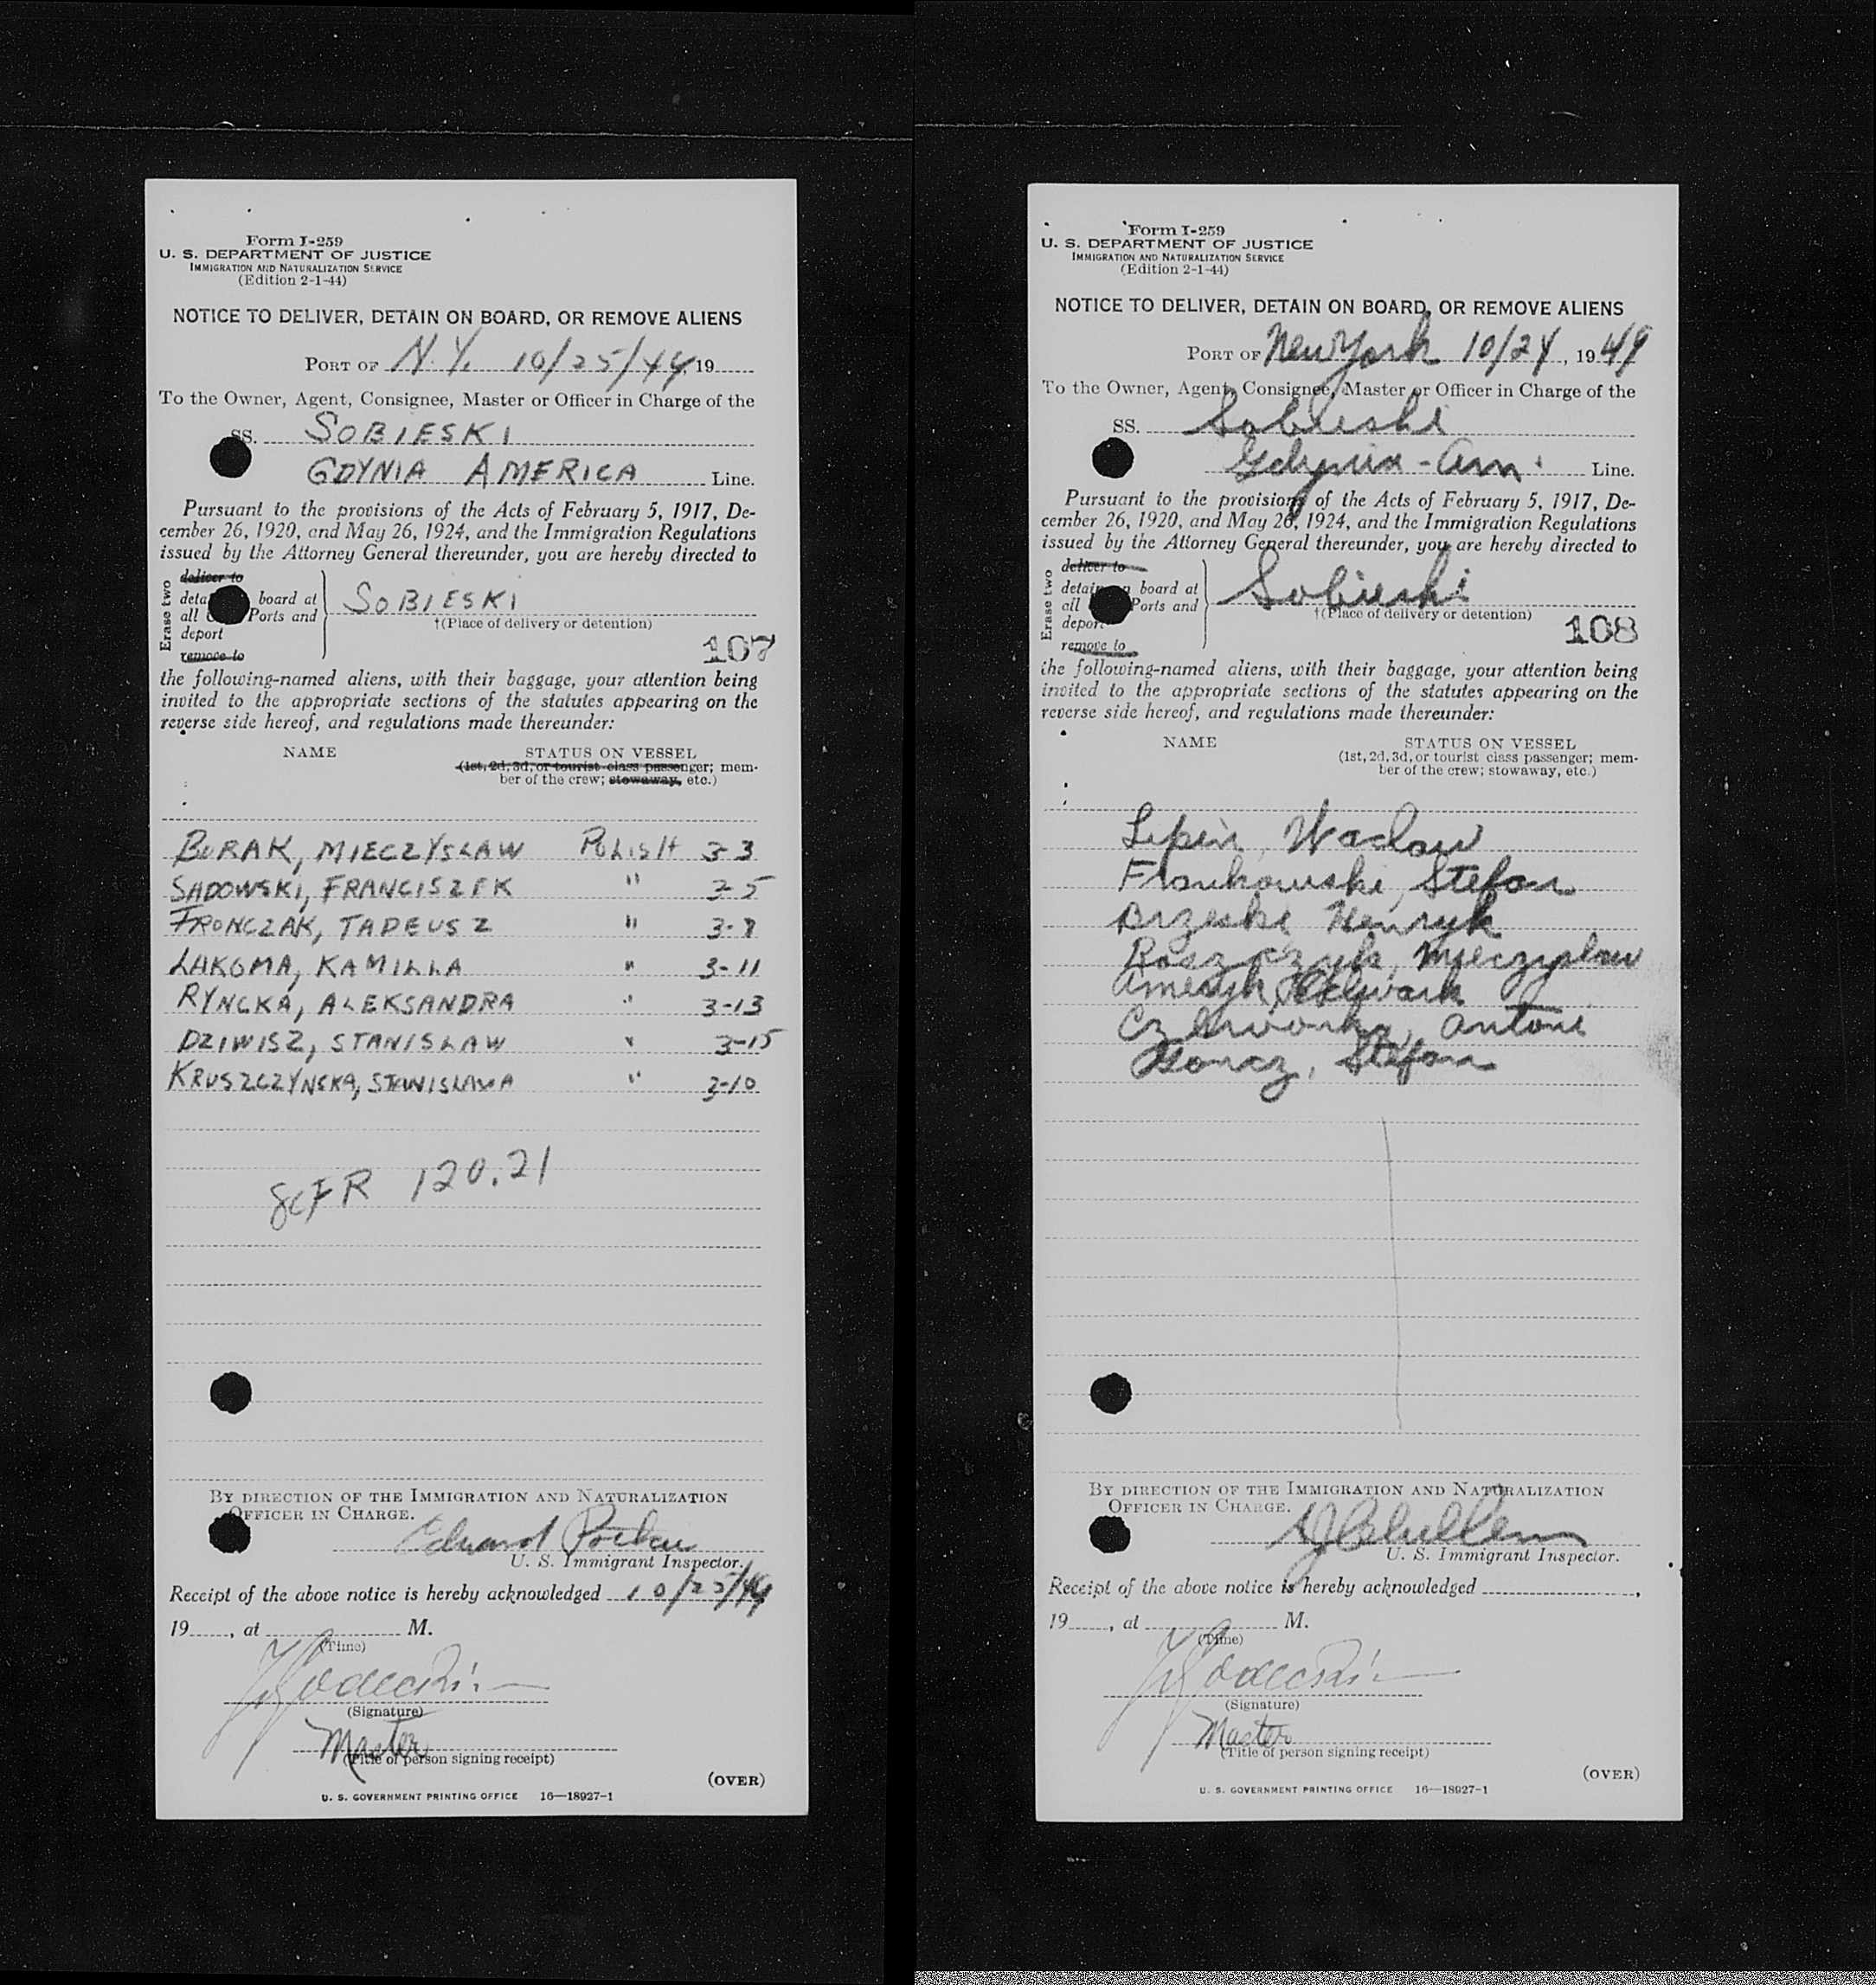 Form I-259
U. S. DEPARTMENT OF JUSTICE
IMMIGRATION AND NATURALIZATION SERVICE
(Edition 2-1-44)
NOTICE TO DELIVER, DETAIN ON BOARD, OR REMOVE ALIENS
PORT OF N.Y. 10/25/44, 19
To the Owner, Agent, Consignee, Master or Officer in Charge of the
SS. SOBIESKI
GDYNIA AMERICA Line.
Pursuant to the provisions of the Acts of February 5, 1917, De-
cember 26, 1920, and May 26, 1924, and the Immigration Regulations
issued by the Attorney General thereunder, you are hereby directed to
Erase two
deliver to
board at
all Ports and
deport
remove to
SOBIESKI
†(Place of delivery or detention)
107
the following-named aliens, with their baggage, your attention being
invited to the appropriate sections of the statutes appearing on the
reverse side hereof, and regulations made thereunder:
NAME STATUS ON VESSEL
(1st, 2d, 3d, or tourist class passenger; mem-
ber of the crew; stowaway, etc.)
BURAK, MIECZYSLAW POLISH 3-3
SADOWSKI, FRANCISZEK " 3-5
FRONCZAK, TADEUSZ " 3-8
LAKOMA, KAMILLA " 3-11
RYNCKA, ALEKSANDRA " 3-13
DZIWISZ, STANISLAW " 3-15
KRUSZCZYNSKA, STANISLAWA " 3-10
8CFR 120.21
BY DIRECTION OF THE IMMIGRATION AND NATURALIZATION
OFFICER IN CHARGE.
Edward
U. S. Immigrant Inspector.
Receipt of the above notice is hereby acknowledged 10/25/44
19, at M.
(Time)
(Signature)
Master
(Title of person signing receipt)
(OVER)
U. S. GOVERNMENT PRINTING OFFICE 16—18927-1
Form I-259
U. S. DEPARTMENT OF JUSTICE
IMMIGRATION AND NATURALIZATION SERVICE
(Edition 2-1-44)
NOTICE TO DELIVER, DETAIN ON BOARD, OR REMOVE ALIENS
PORT OF New York 10/24, 1949
To the Owner, Agent, Consignee, Master or Officer in Charge of the
SS. Sobieski
Gdynia-Am. Line.
Pursuant to the provisions of the Acts of February 5, 1917, De-
cember 26, 1920, and May 26, 1924, and the Immigration Regulations
issued by the Attorney General thereunder, you are hereby directed to
Erase two
deliver to
board at
all Ports and
deport
remove to
Sobieski
†(Place of delivery or detention)
108
the following-named aliens, with their baggage, your attention being
invited to the appropriate sections of the statutes appearing on the
reverse side hereof, and regulations made thereunder:
NAME STATUS ON VESSEL
(1st, 2d, 3d, or tourist class passenger; mem-
ber of the crew; stowaway, etc.)
Waclaw
Frankowski, Stefan
Brzeski Henryk
Mieczyslaw
Antoni
Stefan
BY DIRECTION OF THE IMMIGRATION AND NATURALIZATION
OFFICER IN CHARGE.
U. S. Immigrant Inspector.
Receipt of the above notice is hereby acknowledged ,
19, at M.
(Time)
(Signature)
Master
(Title of person signing receipt)
(OVER)
U. S. GOVERNMENT PRINTING OFFICE 16—18927-1